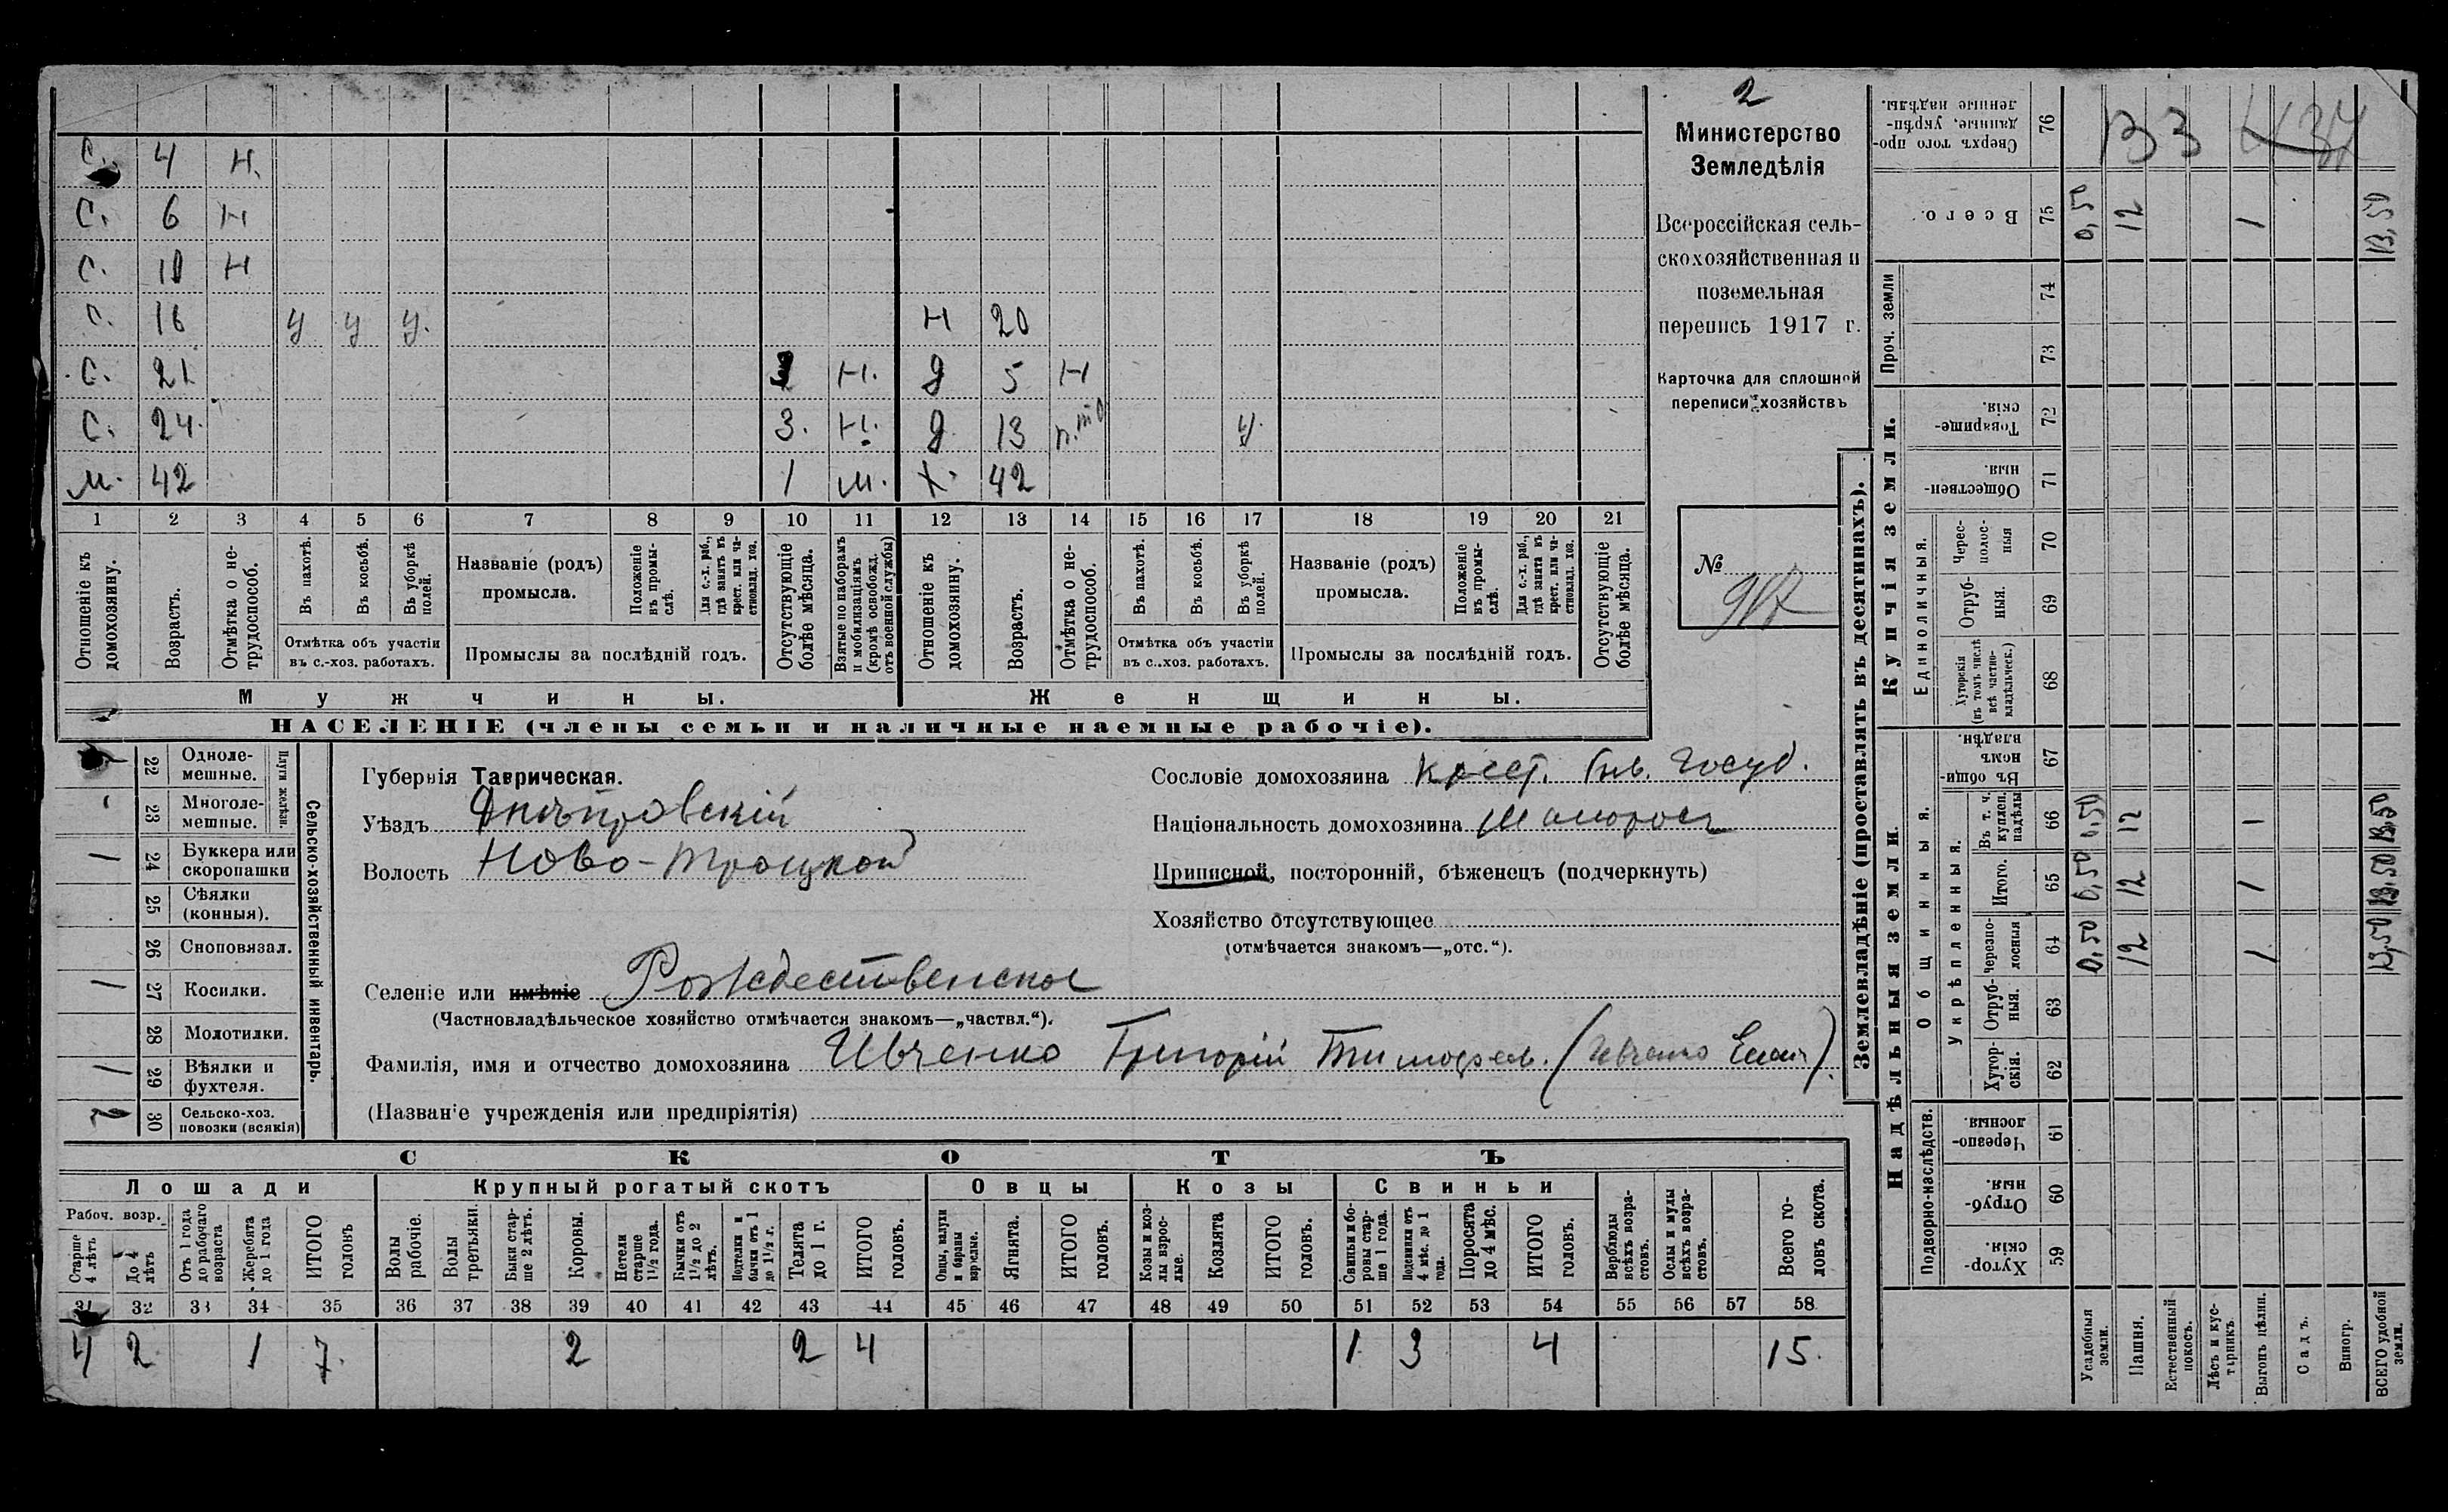 2
Министерство
Земледѣлія
Всероссійская сель-
скохозяйственная и
поземельная
перепись 1917 г.
Карточка для сплошной
переписи хозяйствъ
№
С. 4 Н.
С. 6 Н
С. 10 Н
С. 16 у у у. Н 20
С. 21 Н. д 5 Н
С. 24. 3. Н. д 13 у.
М. 42 1 М. Х. 42
1 2 3 4 5 6 7 8 9 10 11 12 13 14 15 16 17 18 19 20 21
Отношеніе къ домохозяину.
Возрастъ.
Отмѣтка о не-трудоспособ.
Въ пахотѣ.
Въ косьбѣ.
Въ уборкѣ полей.
Отмѣтка объ участіи
въ с.-хоз. работахъ.
Названіе (родъ)
промысла.
Положеніе въ промы-слѣ.
Для с.-х. раб., гдѣ занятъ въ крест. или ча-стновлад. хоз.
Промыслы за послѣдній годъ.
Отсутствующіе болѣе мѣсяца.
Взятые по наборамъ и мобилизаціямъ (кромѣ освобожд. отъ военной службы)
Отношеніе къ домохозяину.
Возрастъ.
Отмѣтка о не-трудоспособ.
Въ пахотѣ.
Въ косьбѣ.
Въ уборкѣ полей.
Отмѣтка объ участіи
въ с..хоз. работахъ.
Названіе (родъ)
промысла.
Положеніе въ промы-слѣ.
Для с.-х. раб., гдѣ занята въ крест. или ча-стновлад. хоз.
Промыслы за послѣдній годъ.
Отсутствующіе болѣе мѣсяца.
Мужчины.
Женщины.
НАСЕЛЕНІЕ (члены семьи и наличные наемные рабочіе).
22 Одноле-мешные.
23 Многоле-мешные.
Плуги желѣзн.
1 24 Буккера или скоропашки
25 Сѣялки (конныя).
26 Сноповязал.
1 27 Косилки.
28 Молотилки.
1 29 Вѣялки и фухтеля.
2 30 Сельско-хоз. повозки (всякія)
Сельско-хозяйственный инвентарь.
Губернія Таврическая.
Уѣздъ Днѣпровскій
Волость Ново-Троицкой
Сословіе домохозяина Крест. быв. Госуд.
Національность домохозяина Малоросъ
Приписной, посторонній, бѣженец (подчеркнуть)
Хозяйство отсутствующее
(отмѣчается знакомъ—„отс.“).
Селеніе или имѣніе Рождественское
(Частновладѣльческое хозяйство отмѣчается знакомъ—„частвл.“).
Фамилія, имя и отчество домохозяина Ивченко Григорій Тимофеев. (Ивченко
(Названіе учрежденія или предпріятія)
СКОТЪ
Лошади
Крупный рогатый скотъ
Овцы
Козы
Свиньи
Рабоч. возр.
Старше 4 лѣтъ
До 4 лѣтъ
Отъ 1 года до рабочаго возраста
Жеребята до 1 года
ИТОГО головъ
Волы рабочіе.
Волы третьяки.
Быки стар-ше 2 лѣтъ.
Коровы.
Нетели старше 1½ года.
Бычки отъ 1½ до 2 лѣтъ.
Подтелки и бычки отъ 1 до 1½ г.
Телята до 1 г.
ИТОГО головъ.
Овцы, валухи и бараны взрослые.
Ягнята.
ИТОГО головъ.
Козы и коз-лы взрос-лые.
Козлята
ИТОГО головъ.
Свиньи и бо-ровы стар-ше 1 года.
Подсвинки отъ 4 мѣс. до 1 года.
Поросята до 4 мѣс.
ИТОГО головъ.
Верблюды всѣхъ возра-стовъ.
Ослы и мулы всѣхъ возра-стовъ.
Всего го-ловъ скота.
31 32 33 34 35 36 37 38 39 40 41 42 43 44 45 46 47 48 49 50 51 52 53 54 55 56 57 58
4 2 1 7. 2 2 4 1 3 4 15.
Землевладѣніе (проставлять въ десятинахъ).
Купчія земли.
Надѣльныя земли.
76 Сверхъ того про-данные, укрѣп-ленные надѣлы.
75 Всего. 0,50 12 1 13,50
Проч. земли
74
73
72 Товарище-скія.
71 Обществен-ныя.
Единоличныя.
70 Черес-полос-ныя
69 Отруб-ныя.
68 Хуторскія (въ томъ числѣ всѣ частно-владѣльческ.)
Общинныя.
67 Въ общи-номъ владѣн.
Укрѣпленныя.
66 Въ т. ч. куплен. надѣлы 0,50 12 1 13,50
65 Итого. 0,50 12 1 13,50
64 Черезпо-лосныя 0,50 12 1 13,50
63 Отруб-ныя.
62 Хутор-скія.
Подворно-наслѣдств.
61 Черезпо-лосныя.
60 Отруб-ныя.
59 Хутор-скія.
Усадебныя земли.
Пашня.
Естественный покосъ.
Лѣсъ и кус-тарникъ.
Выгонъ цѣлин.
Садъ.
Виногр.
ВСЕГО удобной земли.